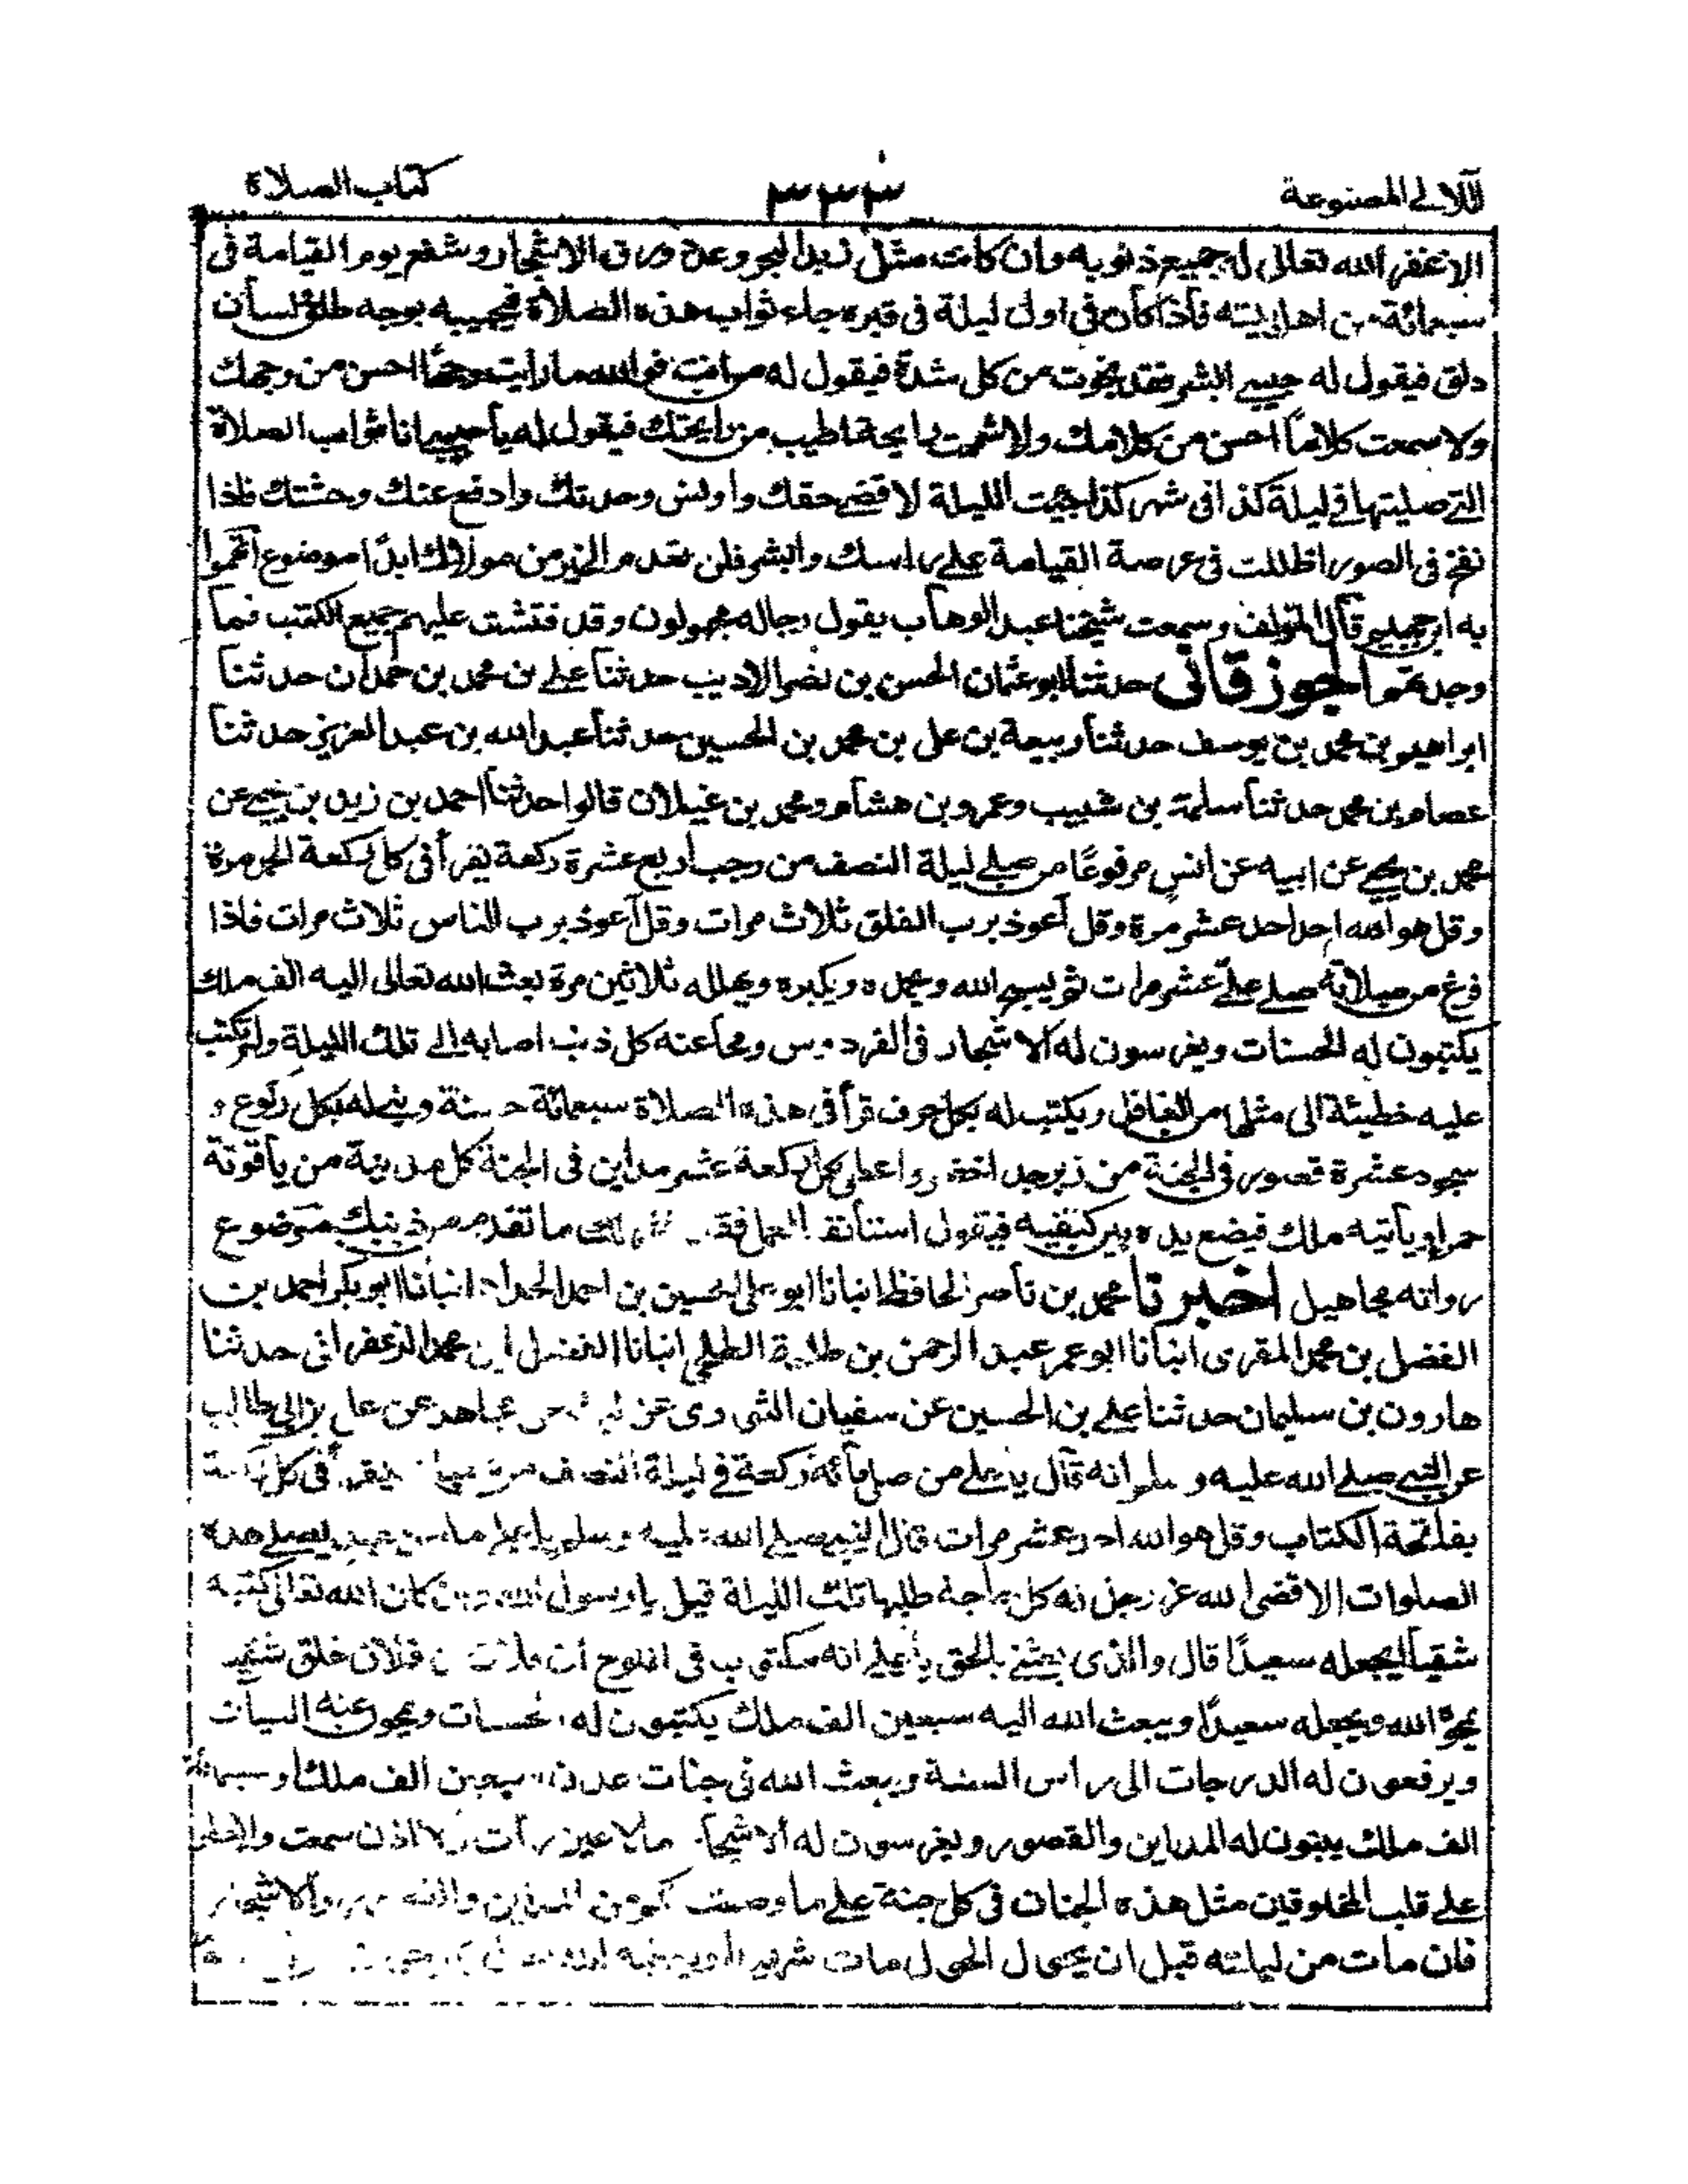 اللآلى المصنوعة
٣٣٣
كتاب الصلاة
الاغفر الله تعالى له جميع ذنوبه وان كانت مثل زبد البحر وعدد ورق الاشجار وشفع يوم القيامة فى
سبعمائة من اهل بيته فاذا كان فى اول ليلة فى قبره جاء ثواب هذه الصلاة فيجيبه بوجه طلق لسان
دلق فيقول له حبيبى ابشر فقد نجوت من كل شدة فيقول له من انت فوالله ما رايت وجها احسن من وجهك
ولا سمعت كلاماً احسن من كلامك ولا شممت رايحة اطيب من رايحتك فيقول له يا حبيبى انا ثواب الصلاة
التى صليتها فى ليلة كذا فى شهر كذا جئت الليلة لا قضى حقك واونس وحدتك وادفع عنك وحشتك فاذا
نفخ فى الصور اظللت فى عرصة القيامة على راسك وابشر فلن تقدم الخير من مولاك ابدًا موضوع اتهموا
به ابن جهيم قال المؤلف وسمعت شيخنا عبد الوهاب يقول رجاله مجهولون وقد فتشت عليهم جميع الكتب فما
وجدتهم الجوزقانى حدثنا ابو عثمان الحسن بن نصر الاديب حدثنا على بن محمد بن حمدان حدثنا
ابراهيم بن محمد بن يوسف حدثنا ربيعة بن على بن محمد بن الحسين حدثنا عبد الله بن عبد العزيز حدثنا
عصام بن محمد حدثنا سلمة بن شبيب وعمرو بن هشام ومحمد بن غيلان قالوا حدثنا احمد بن زيد بن يحيى عن
محمد بن يحيى عن ابيه عن انس مرفوعًا من صلى ليلة النصف من رجب اربع عشرة ركعة يقرأ فى كل ركعة الحمد مرة
وقل هو الله احد احد عشر مرة وقل أعوذ برب الفلق ثلاث مرات وقل أعوذ برب الناس ثلاث مرات فاذا
فرغ من صلاته صلى علىّ عشر مرات ثم يسبح الله ويحمده ويكبره ويهلله ثلاثين مرة بعث الله تعالى اليه الف ملك
يكتبون له الحسنات ويغرسون له الاشجار فى الفردوس ومحا عنه كل ذنب اصابه الى تلك الليلة ولم تكتب
عليه خطيئة الى مثلها من القابل ويكتب له بكل حرف قرأ فى هذه الصلاة سبعمائة حسنة وبنى له بكل ركوع و
سجود عشرة قصور فى الجنة من زبرجد اخضر واعطى بكل ركعة عشر مداين فى الجنة كل مدينة من ياقوتة
حمراء ويأتيه ملك فيضع يده بين كتفيه فيقول استأنف العمل فقد غفر لك ما تقدم من ذنبك موضوع
رواته مجاهيل اخبرنا محمد بن ناصر الحافظ انبانا ابو على الحسين بن احمد الحداد انبأنا ابو بكر احمد بن
الفضل بن محمد المقرى انبأنا ابو عمر عبد الرحمن بن طلحة الطلحى انبانا الفضل ابن محمد الزعفرانى حدثنا
هارون بن سليمان حدثنا على بن الحسين عن سفيان الثورى عن ليث عن مجاهد عن على بن ابى طالب
عن النبى صلى الله عليه وسلم انه قال يا على من صلى مائة ركعة فى ليلة النصف من شعبان يقرأ فى كل ركعة
بفاتحة الكتاب وقل هو الله احد عشر مرات قال النبى صلى الله عليه وسلم يا على ما من عبد يصلى هذه
الصلوات الا قضى الله عز وجل له كل حاجة طلبها تلك الليلة قيل يا رسول الله وان كان الله تعالى كتبه
شقيا ليجعله سعيدًا قال والذى بعثنى بالحق يا على انه مكتوب فى اللوح أن فلان بن فلان خلق شقيا
يمحوه الله ويجعله سعيدًا ويبعث الله اليه سبعين الف ملك يكتبون له الحسنات ويمحون عنه السيات
ويرفعون له الدرجات الى راس السنة ويبعث الله فى جنات عدن سبعين الف ملك او سبعمائة
الف ملك يبنون له المداين والقصور ويغرسون له الاشجار ما لا عين رأت ولا اذن سمعت ولا خطر
على قلب المخلوقين مثل هذه الجنان فى كل جنة على ما وصفت لكم من المداين والقصور والاشجار
فان مات من ليلته قبل ان يحول الحول مات شهيدا